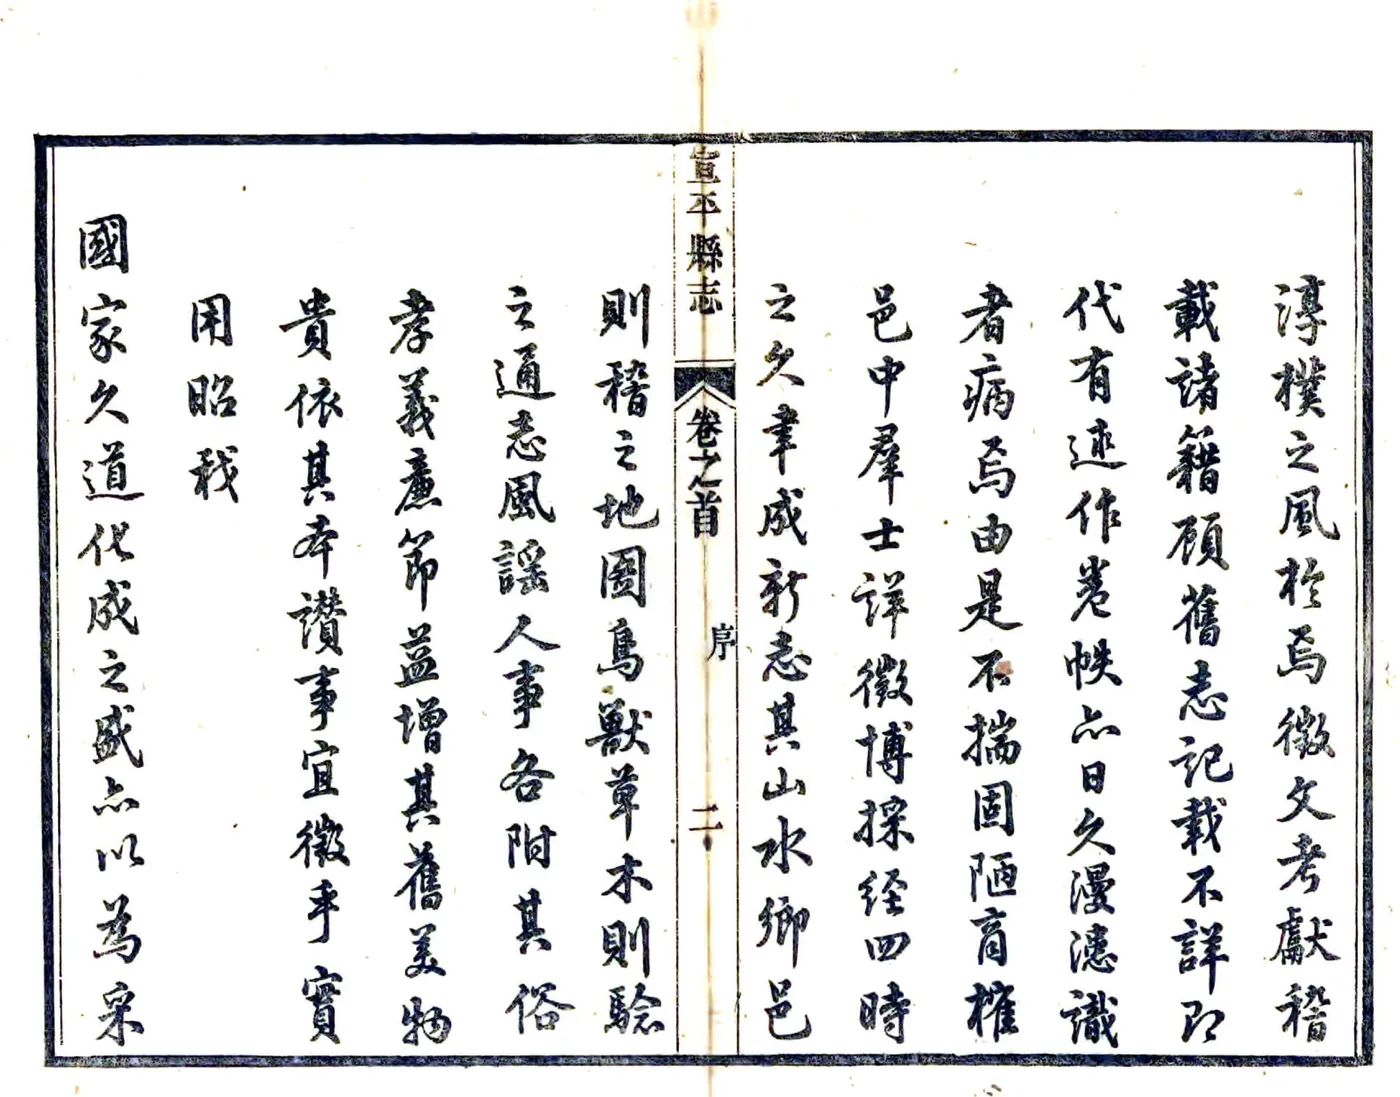 淳樸之風於焉徵文考獻稽
載諸籍顧舊志記載不詳即
代有述作卷帙亦日久漫漶識
者病焉由是不揣固陋商榷
邑中羣士詳徵博採经四時
之久聿成新志其山水鄉邑
宣平縣志
卷之首
序
二
則稽之地圖鳥獸草木則驗
之通志風謠人事各附其俗
孝義廉節益增其舊美物
貴依其本讚事宜徵乎實
用昭我
國家久道化成之盛亦以為采